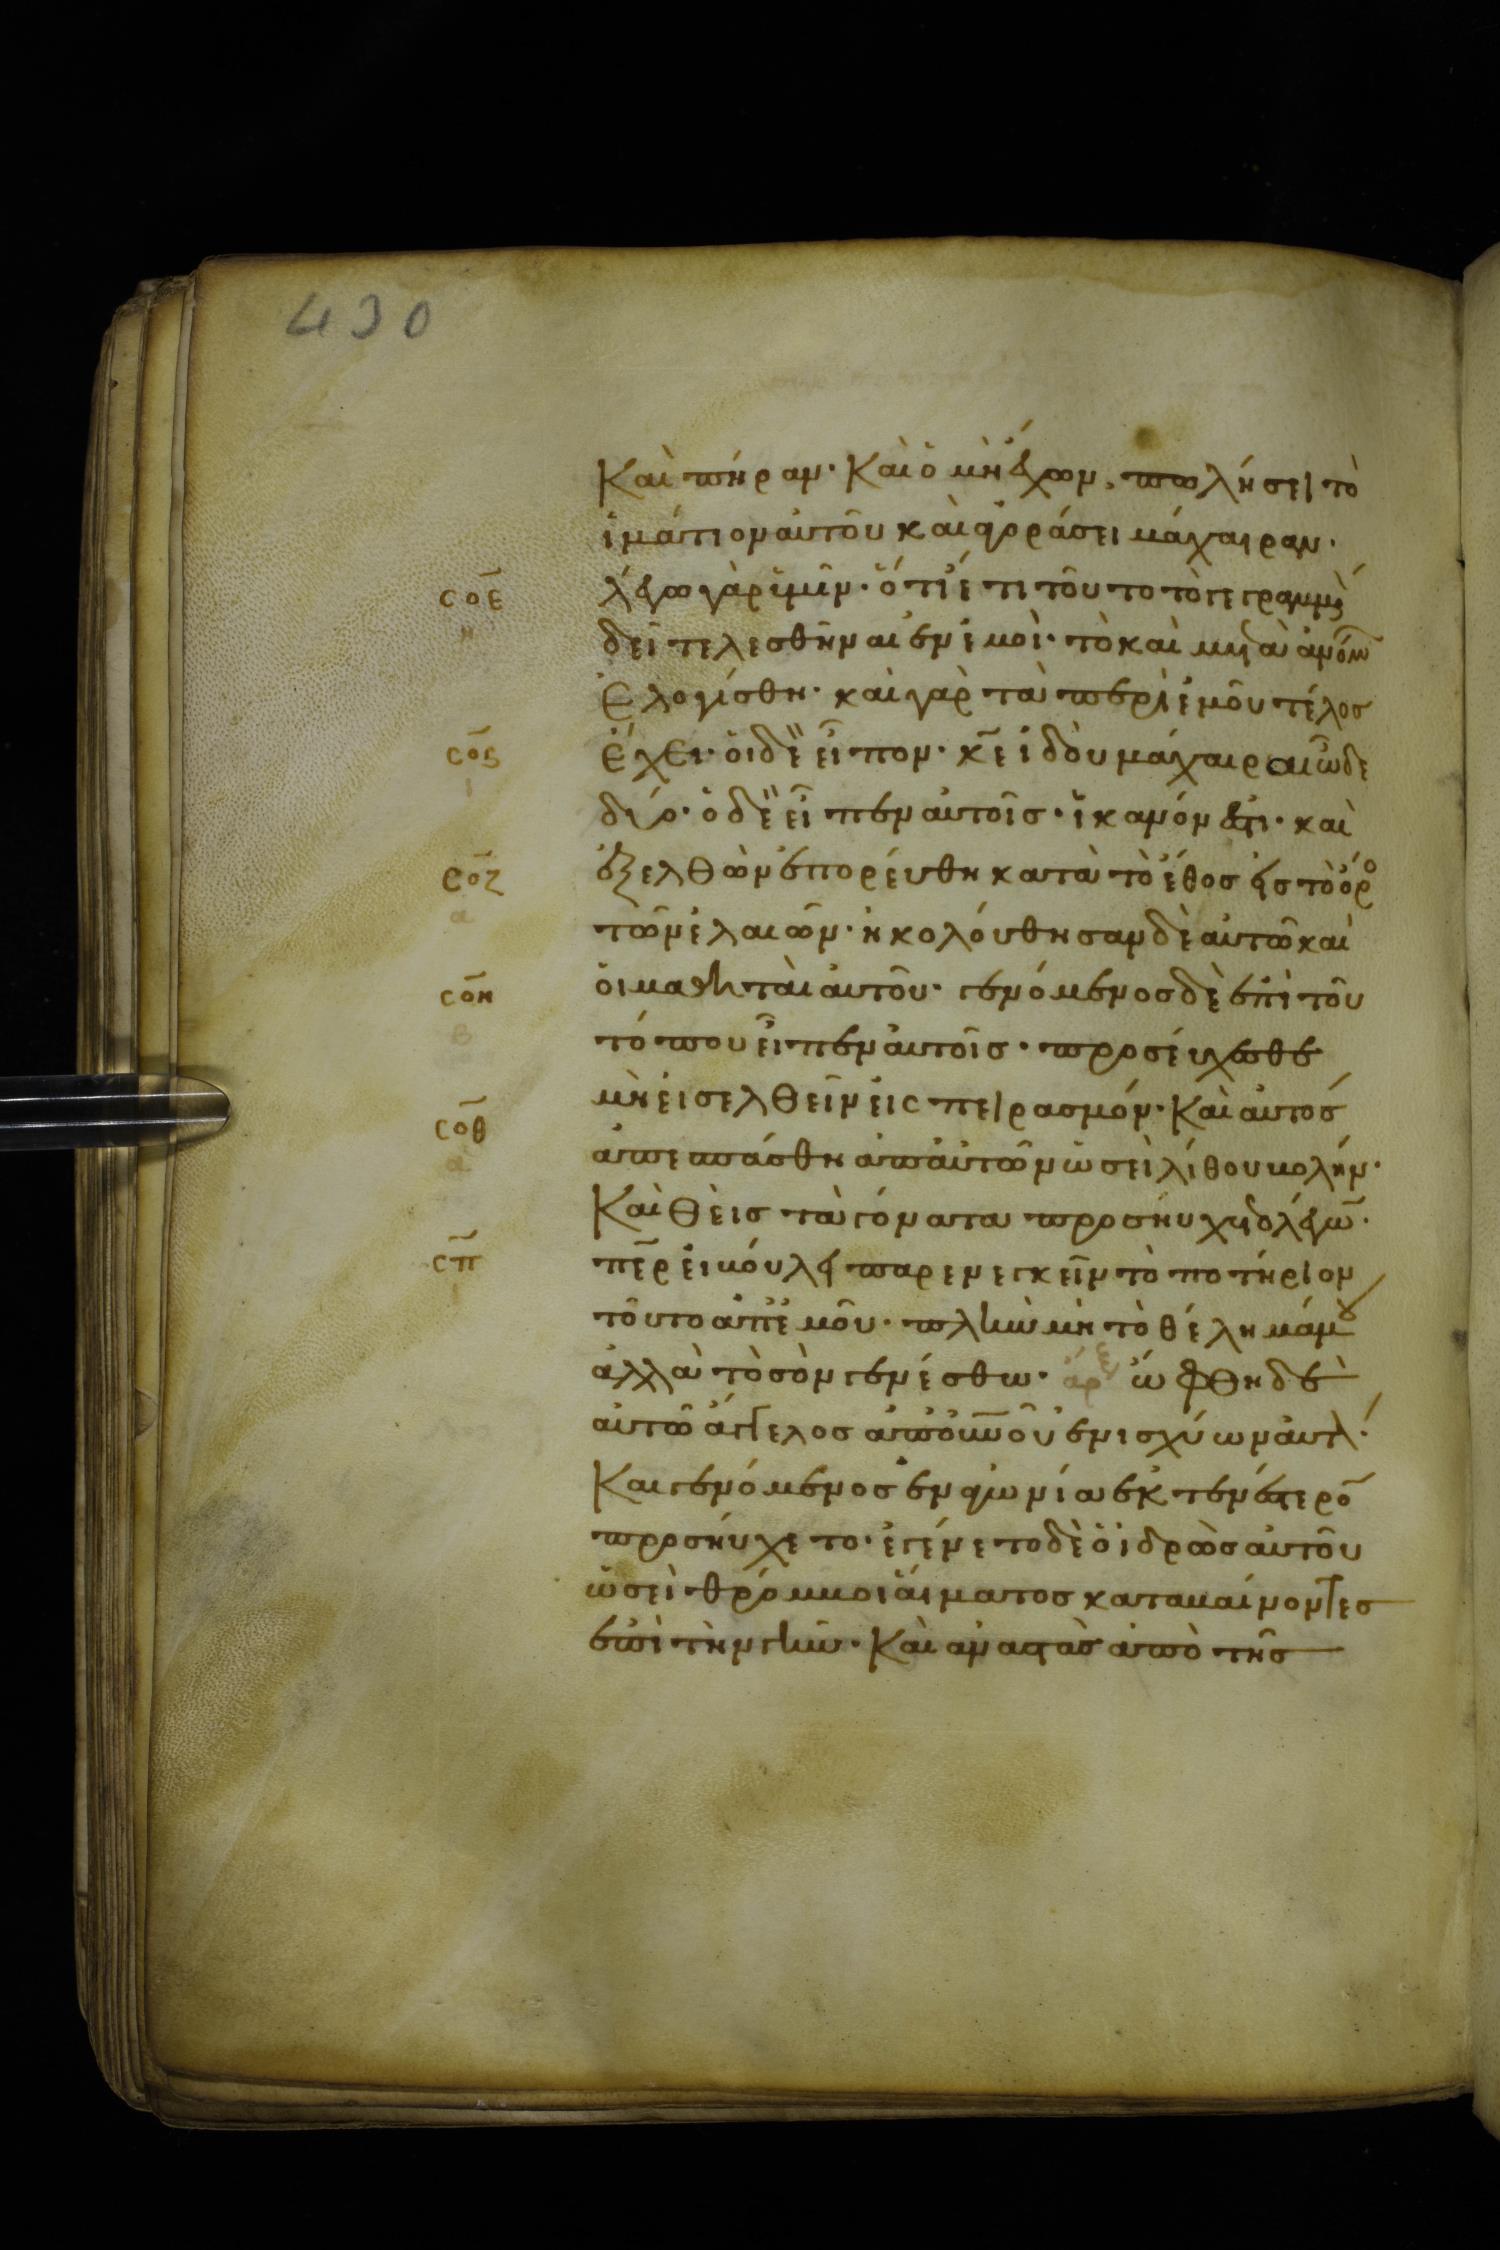 430
Καὶ πήραν· Καὶ ὁ μὴ ἔχων, πωλήσει τὸ
ἱμάτιον αὐτοῦ καὶ ἀγοράσει μάχαιραν·
σοε λέγω γὰρ ὑμῖν· ὅτι ἔτι τοῦτο τὸ γεγραμμέ
δεῖ τελεσθῆναι ἐν ἐμοὶ· τὸ καὶ μετὰ ἀνόμω
Ἐλογίσθη· καὶ γὰρ τὰ περὶ ἐμοῦ τέλος
σος Ἔχει· οἱ δὲ εἶπον· κε ἰδοὺ μάχαιραι ὧδε
δύο· ὁ δὲ εἶπεν αὐτοῖς· ἱκανόν ἐστι· καὶ
σοζ ἐξελθὼν ἐπορεύθη κατὰ τὸ ἔθος εἰς τὸ ὄρο
τῶν ἐλαιῶν· ἠκολούθησαν δὲ αὐτῶ καὶ
σοη οἱ μαθηταὶ αὐτοῦ· γενόμενος δὲ ἐπὶ τοῦ
τόπου εἶπεν αὐτοῖς· προσεύχεσθε
μὴ εἰσελθεῖν εἰς πειρασμόν· Καὶ αὐτὸς
σοθ ἀπεσπάσθη ἀπ αὐτῶν ὡσεὶ λίθου βολήν·
Καὶ θεὶς τὰ γόνατα προσηύχετο λέγων·
σπ περ εἰ βούλει παρενεγκεῖν τὸ ποτήριον
τοῦτο ἀπ ἐμοῦ· πλὴν μὴ τὸ θέλημά μου
ἀλλὰ τὸ σὸν γενέσθω· ὤφθη δὲ
αὐτῶ ἄγγελος ἀπ οὐνοῦ ἐνισχύων αὐτὸ·
Καὶ γενόμενος ἐν ἀγωνία ἐκτενέστερο
προσηύχετο· ἐγένετο δὲ ὁ ἱδρὼς αὐτοῦ
ὡσεὶ θρόμβοι αἵματος καταβαίνοντες
ἐπὶ τὴν γῆν· Καὶ ἀναστὰς ἀπὸ τῆς